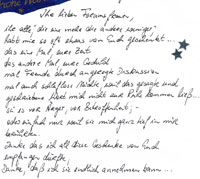 Ihr lieben Forumsfrauen,
ihr alle, die uns mehr oder andere weniger,
habt mir so oft etwas von Euch geschenkt...
das eine Mal, war Zeit
das andere Mal war Geduld
mal Freude durch angeregte Diskussion
mal auch schlaflose Nächte, weil das gesagte und
geschriebene mich nicht zur Ruhe kommen ließ...
sei es vor Ärger, vor Betroffenheit,
oder einfach nur weil sie mich ganz tief in mir
berührten.
Danke das ich all diese Geschenke von Euch
empfangen durfte,
Danke, daß ich sie endlich annehmen kann...